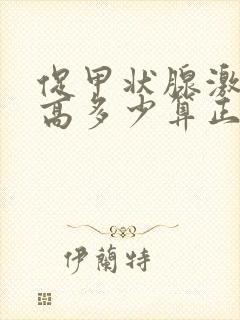 促甲状腺激
高多少算正
伊蘭特